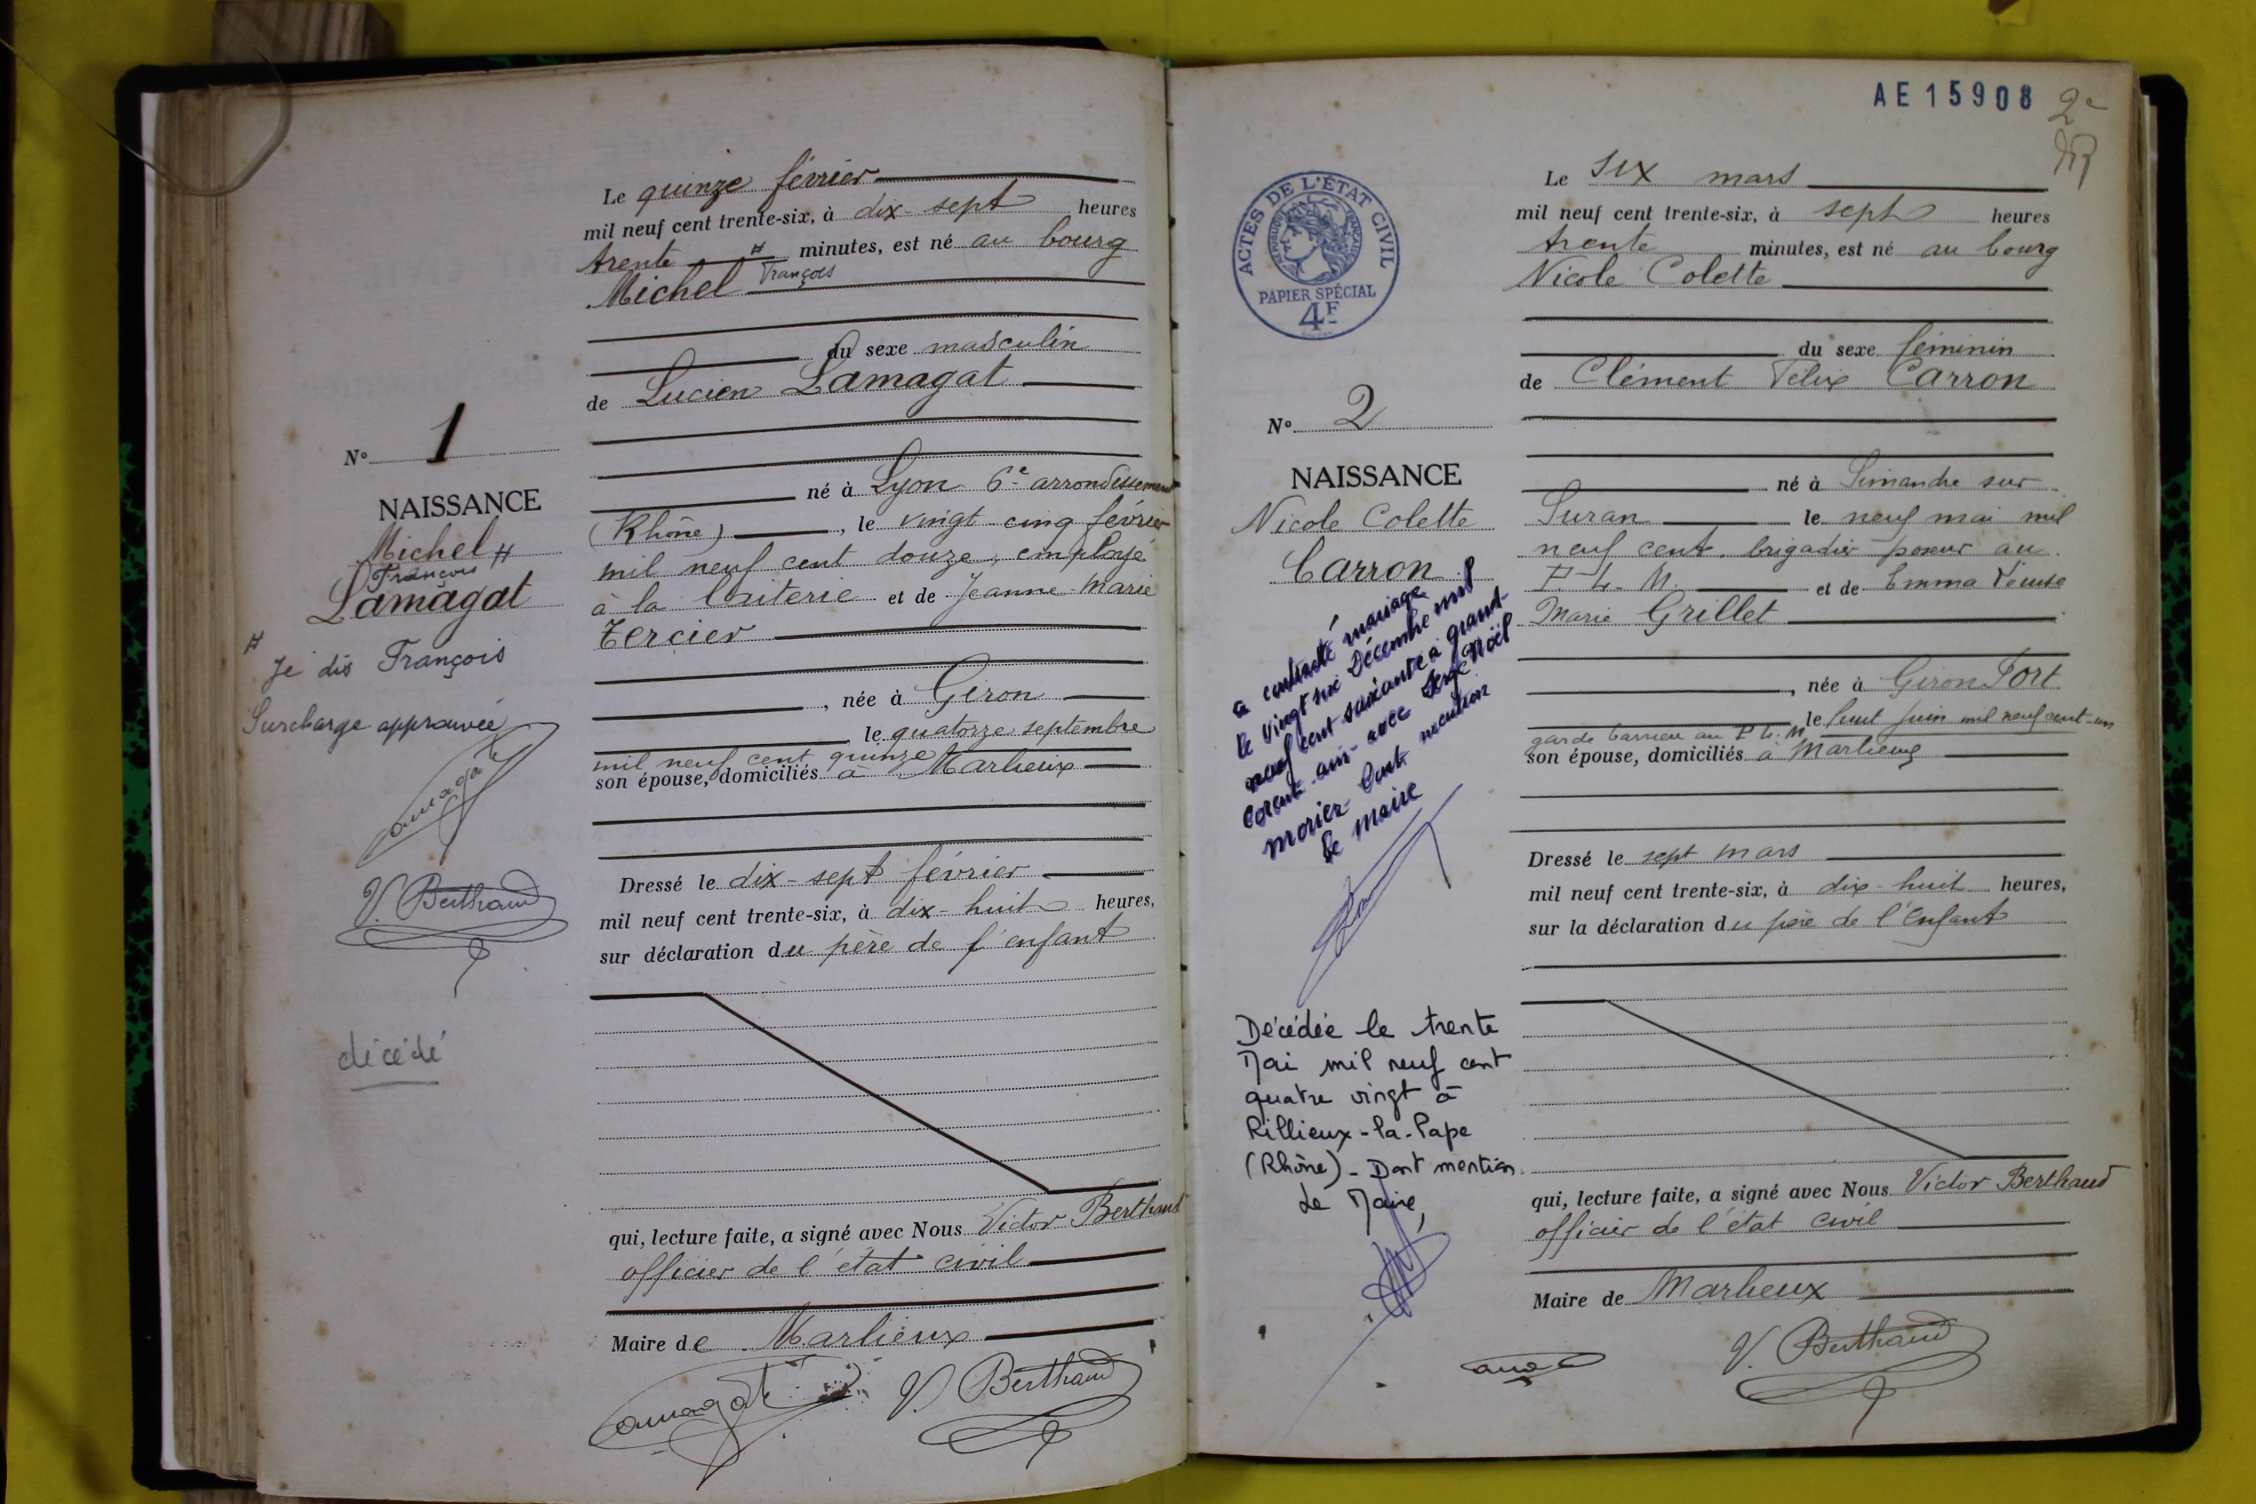 Le quinze février
mil neuf cent trente-six, à dix-sept heures
trente # minutes, est né au bourg
Michel François
du sexe masculin
de Lucien Lamagat
né à Lyon 6e arrondissement
(Rhône), le vingt-cinq février
mil neuf cent douze, employé
à la laiterie et de Jeanne-Marie
Tercier
, née à Giron
, le quatorze septembre
mil neuf cent quinze
son épouse, domiciliés à Marlieux
Dressé le dix-sept février
mil neuf cent trente-six, à dix-huit heures,
sur déclaration du père de l'enfant
qui, lecture faite, a signé avec Nous Victor Berthaud
officier de l'état civil
Maire de Marlieux
Lamagat V. Berthaud
N° 1
NAISSANCE
Michel #
François
Lamagat
# Je dis François
Surcharge approuvée
Lamagat
V. Berthaud
décédé
AE15908
2e
ACTES DE L'ÉTAT CIVIL
RÉPUBLIQUE FRANÇAISE
PAPIER SPÉCIAL
4F
N° 2
NAISSANCE
Nicole Colette
Carron
a contracté mariage
le vingt six Décembre mil
neuf cent soixante à grand-
corent - ain - avec Serge Noël
Morier - Dont mention
Le Maire
Décédée le trente
Mai mil neuf cent
quatre vingt à
Rillieux-la-Pape
(Rhône) - Dont mention
Le Maire,
Le six mars
mil neuf cent trente-six, à sept heures
trente minutes, est né au bourg
Nicole Colette
du sexe féminin
de Clément Félix Carron
né à Simandre sur
Suran le neuf mai mil
neuf cent. brigadier poseur au
P. L. M. et de Emma
Marie Grillet
, née à Giron Fort
, le huit juin mil neuf cent-un
garde barrière au P. L. M
son épouse, domiciliés à Marlieux
Dressé le sept mars
mil neuf cent trente-six, à dix-huit heures,
sur la déclaration du père de l'enfant
qui, lecture faite, a signé avec Nous Victor Berthaud
officier de l'état civil
Maire de Marlieux
V. Berthaud